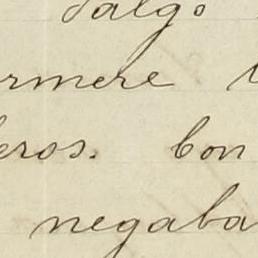 salgo
rmere
eros. Con
negaba